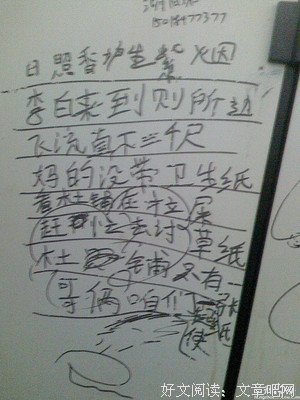 15018477377
日照香炉生紫火因
李白来到则所边
飞流直下三千尺
妈的没带卫生纸
看杜铺在拉屎
赶忙去讨草纸
杜铺又有一
哥俩咱们
使
纸
好文阅读:文章吧网